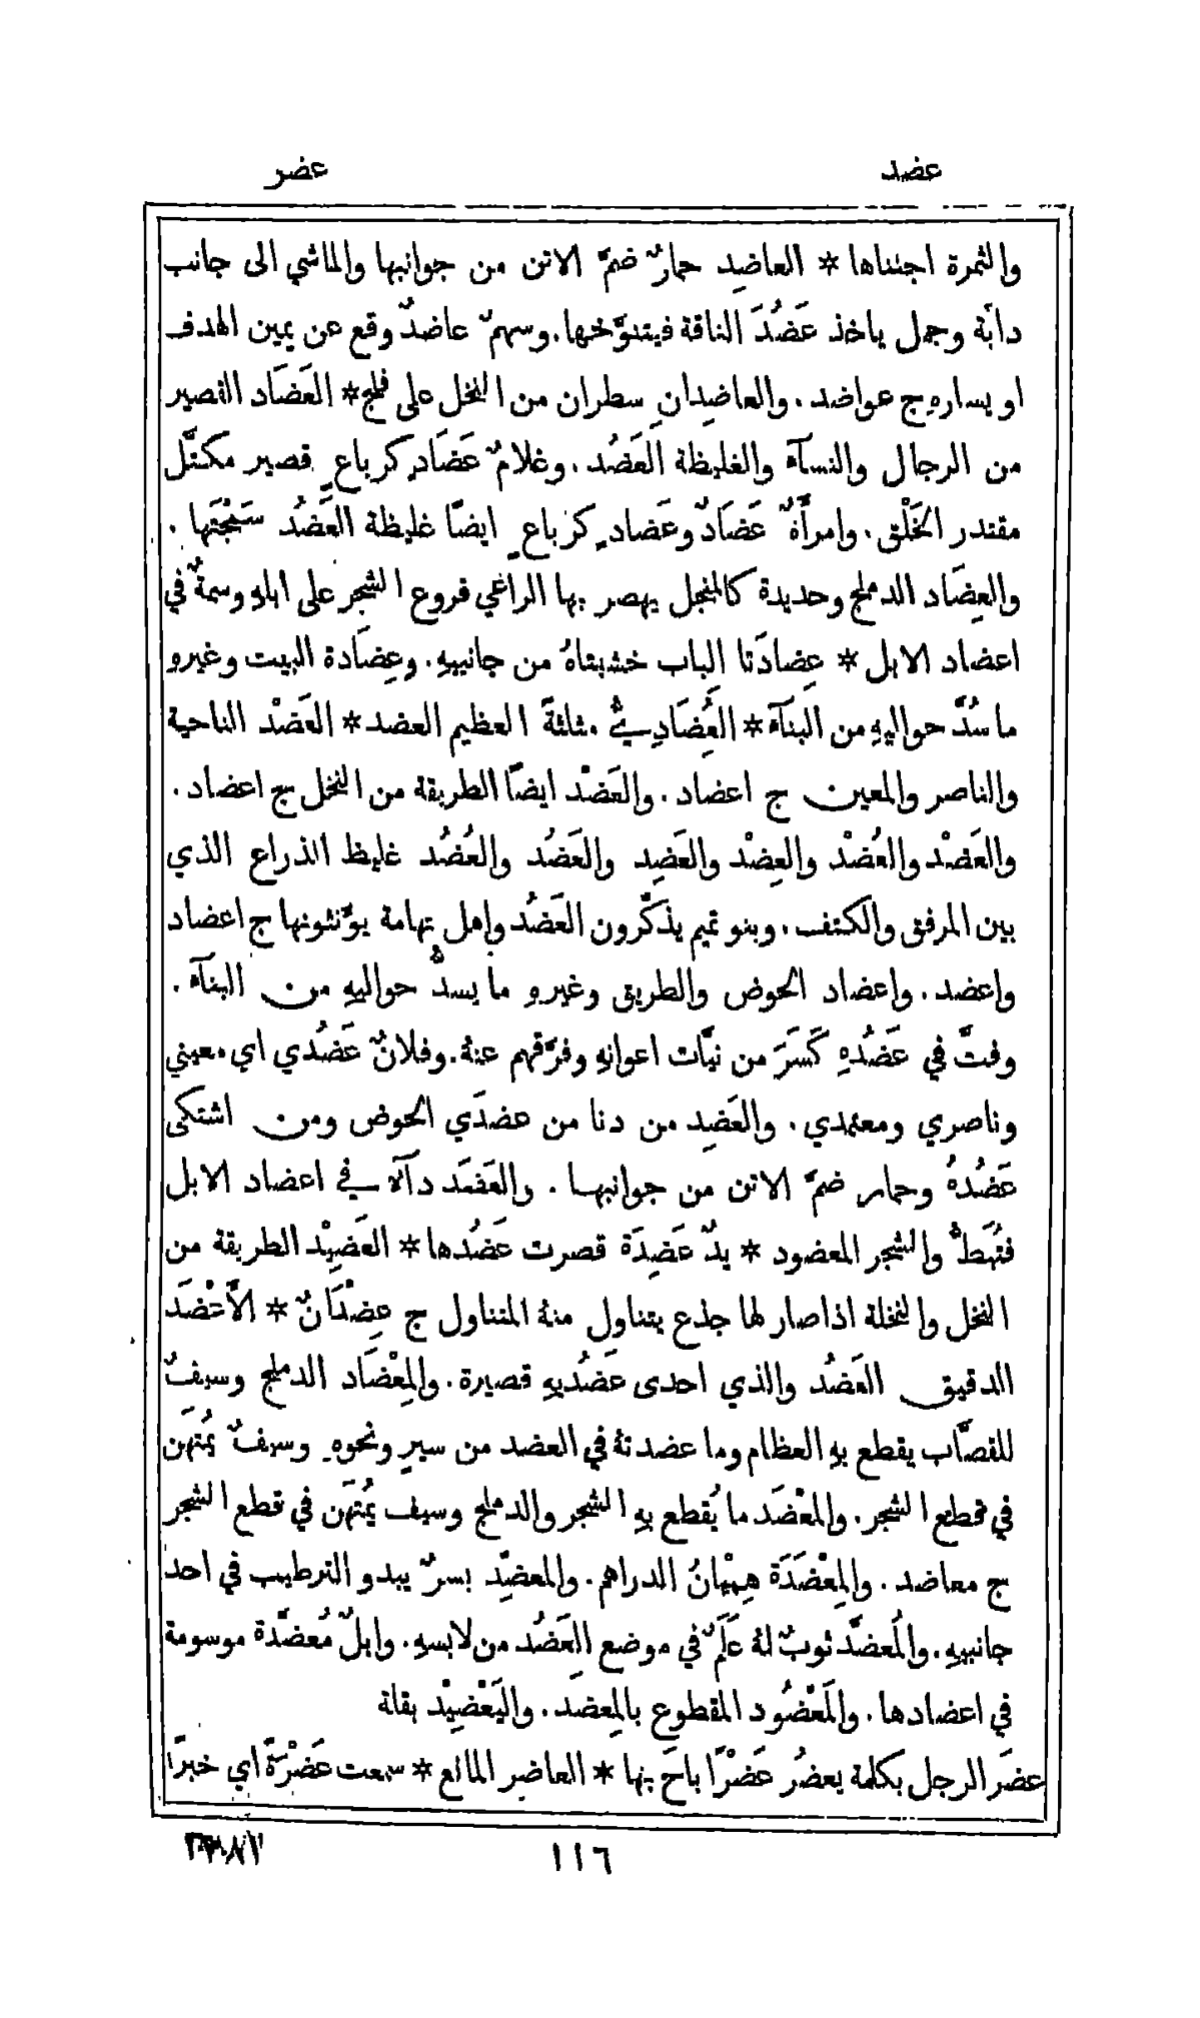 عضد
عضر
والثمرة اجتناها * العاضِد حمارٌ ضمَّ الاتن من جوانبها والماشي الى جانب
دابّة وجمل ياخذ عَضُدَ الناقة فيتنوَّخها. وسهمٌ عاضدٌ وقع عن يمين الهدف
او يسارهِ ج عواضد. والعاضِدانِ سطران من النخل على فلج * العَضَاد القصير
من الرجال والنسآء والغليظة العَضُد. وغلامٌ عَضَادٍ كرباعٍ قصير مكتَّل
مقتدر الخَلْق. وامرأَةٌ عَضَادٌ وعَضادٍ كرباعٍ ايضًا غليظة العَضُد سَمِجَتها.
والعِضَاد الدملج وحديدة كالمنجل يهصر بها الراعي فروع الشجر على ابلهِ وسمةٌ في
اعضاد الابل * عِضادَتا الباب خشبتاهُ من جانبيهِ. وعِضَادة البيت وغيرهِ
ما سُدَّ حواليهِ من البنآء * العُِضَادِيّ مثلثةً العظيم العضد * العَضْد الناحية
والناصر والمعين ج اعضاد. والعَضْد ايضًا الطريقة من النخل ج اعضاد.
والعَضْد والعُضْد والعِضْد والعَضِد والعَضُد والعُضُد غليظ الذراع الذي
بين المرفق والكتف. وبنو تميم يذكّرون العَضُد واهل تهامة يؤَنثونها ج اعضاد
واعضد. واعضاد الحوض والطريق وغيرهِ ما يسدّ حواليهِ من البنآء.
وفتَّ في عَضُدِهِ كَسَرَ من نيَّات اعوانهِ وفرَّقهم عنهُ. وفلانٌ عَضُدي اي معيني
وناصري ومعتمدي. والعَضِد من دنا من عضدَي الحوض ومن اشتكى
عَضُدَهُ وحمار ضمَّ الاتن من جوانبها. والعَضَد دآء في اعضاد الابل
فتُبَطُّ والشجر المعضود * يدٌ عَضِدَة قصرت عَضُدها * العَضِيْد الطريقة من
النخل والنخلة اذا صار لها جذع يتناول منهُ المتناول ج عِضْدَانٌ * الأَعْضَد
الدقيق العَضُد والذي احدى عضُديهِ قصيرة. والمِعْضَاد الدملج وسيفٌ
للقصَّاب يقطع بهِ العظام وما عضدتهُ في العضد من سيرٍ ونحوهِ وسيفٌ يُمتَهَن
في قطع الشجر. والمِعْضَد ما يُقطع بهِ الشجر والدملج وسيف يُمتَهَن في قطع الشجر
ج معاضد. والمِعْضَدَة هِمْيَانُ الدراهم. والمعضِّد بسرٌ يبدو الترطيب في احد
جانبيهِ. والمُعضَّد ثوبٌ لهُ عَلَمٌ في موضع العَضُد من لابسهِ. وابلٌ مُعضَّدة موسومة
في اعضادها. والمَعْضُود المقطوع بالمِعضَد. واليَعْضِيْد بقلة
عضَر الرجل بكلمة يعضُر عَضْرًا باحَ بها * العاضر المانع * سمعت عَضْرَةً اي خبرًا
١١٦